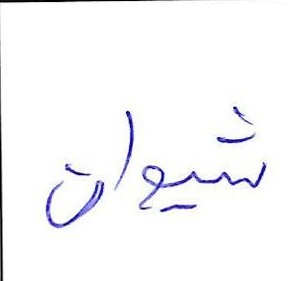 شيوان